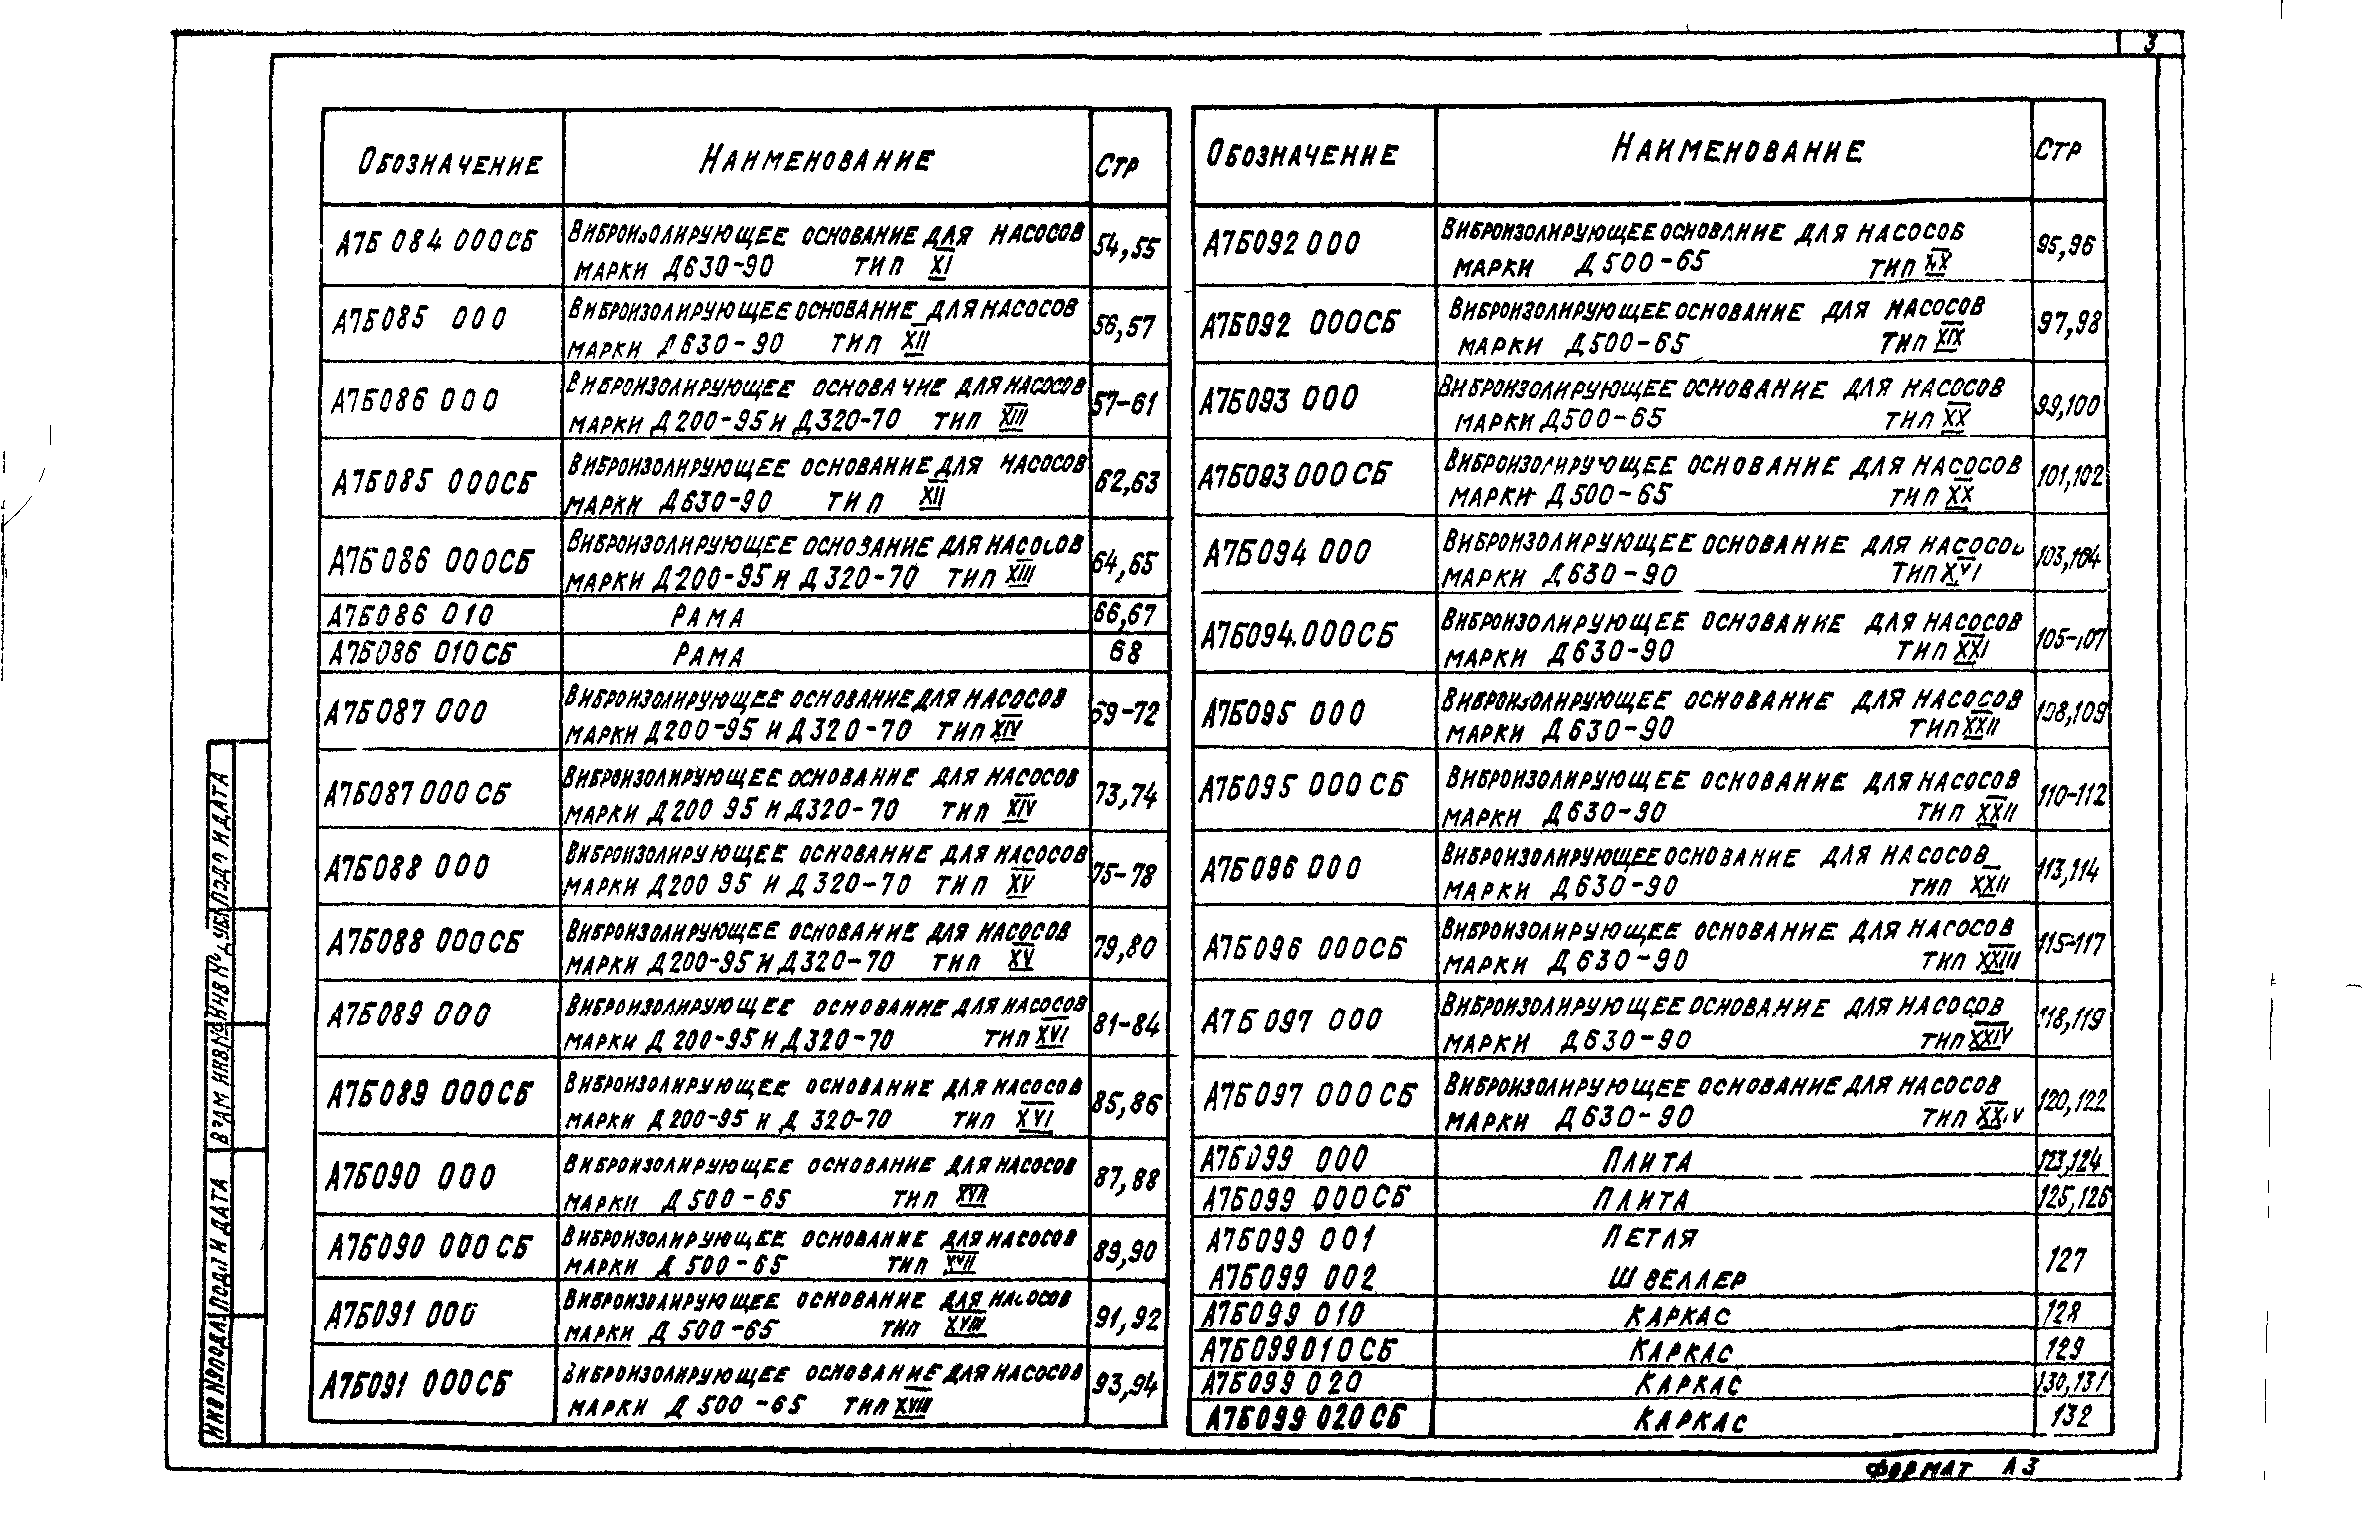 3
Обозначение Наименование Стр
А7Б 084 000СБ Виброизолирующее основание для насосов марки Д630-90 тип XI 54,55
А7Б085 000 Виброизолирующее основание для насосов марки Д630-90 тип XII 56,57
А7Б086 000 Виброизолирующее основачие для насосов марки Д200-95 и Д320-70 тип XIII 57-61
А7Б085 000СБ Виброизолирующее основание для насосов марки Д630-90 тип XII 62,63
А7Б086 000СБ Виброизолирующее основание для насосов марки Д200-95 и Д320-70 тип XIII 64,65
А7Б086 010 Рама 66,67
А7Б086 010СБ Рама 68
А7Б087 000 Виброизолирующее основание для насосов марки Д200-95 и Д320-70 тип XIV 69-72
А7Б087 000СБ Виброизолирующее основание для насосов марки Д200 95 и Д320-70 тип XIV 73,74
А7Б088 000 Виброизолирующее основание для насосов марки Д200 95 и Д320-70 тип XV 75-78
А7Б088 000СБ Виброизолирующее основание для насосов марки Д200-95 и Д320-70 тип XV 79,80
А7Б089 000 Виброизолирующее основание для насосов марки Д200-95 и Д320-70 тип XVI 81-84
А7Б089 000СБ Виброизолирующее основание для насосов марки Д200-95 и Д 320-70 тип XVI 85,86
А7Б090 000 Виброизолирующее основание для насосов марки Д500-65 тип XVII 87,88
А7Б090 000СБ Виброизолирующее основание для насосов марки Д 500-65 тип XVII 89,90
А7Б091 000 Виброизолирующее основание для насосов марки Д 500-65 тип XVIII 91,92
А7Б091 000СБ Виброизолирующее основание для насосов марки Д 500-65 тип XVIII 93,94
Обозначение Наименование Стр
А7Б092 000 Виброизолирующее основание для насосов марки Д500-65 тип 95,96
А7Б092 000СБ Виброизолирующее основание для насосов марки Д500-65 тип XIX 97,98
А7Б093 000 Виброизолирующее основание для насосов марки Д500-65 тип XX 99,100
А7Б093 000СБ Виброизолирующее основание для насосов марки Д500-65 тип XX 101,102
А7Б094 000 Виброизолирующее основание для насосов марки Д630-90 тип XVI 103,104
А7Б094.000СБ Виброизолирующее основание для насосов марки Д630-90 тип XXI 105-107
А7Б095 000 Виброизолирующее основание для насосов марки Д630-90 тип XXII 108,109
А7Б095 000СБ Виброизолирующее основание для насосов марки Д630-90 тип XXII 110-112
А7Б096 000 Виброизолирующее основание для насосов марки Д630-90 тип XXII 113,114
А7Б096 000СБ Виброизолирующее основание для насосов марки Д630-90 тип XXIII 115-117
А7Б097 000 Виброизолирующее основание для насосов марки Д630-90 тип XXIV 118,119
А7Б097 000СБ Виброизолирующее основание для насосов марки Д630-90 тип XXIV 120,122
А7Б099 000 Плита 123,124
А7Б099 000СБ Плита 125,126
А7Б099 001 Петля
А7Б099 002 Швеллер 127
А7Б099 010 Каркас 128
А7Б099 010СБ Каркас 129
А7Б099 020 Каркас 130,131
А7Б099 020СБ Каркас 132
Инв № подл Подп и дата Взам инв № Инв № дубл Подп и дата
Формат А3